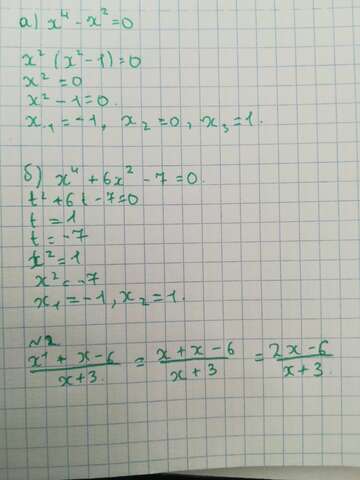 а) x⁴ - x² = 0
x² (x² - 1) = 0
x² = 0
x² - 1 = 0.
x₁ = -1, x₂ = 0, x₃ = 1.
б) x⁴ + 6x² - 7 = 0.
t² + 6t - 7 = 0
t = 1
t = -7
x² = 1
x² = -7
x₁ = -1, x₂ = 1.
№2
(x¹ + x - 6)/(x + 3) = (x + x - 6)/(x + 3) = (2x - 6)/(x + 3).